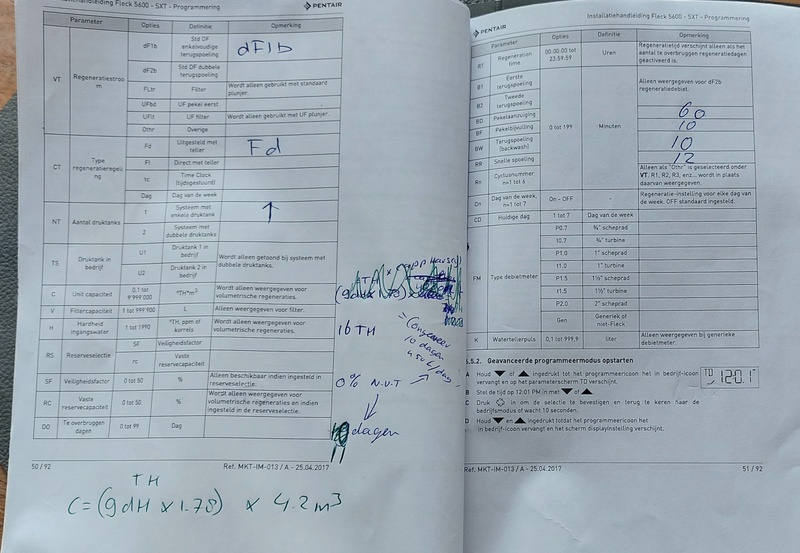 Installatiehandleiding Fleck 5600 - SXT - Programmering
PENTAIR
Parameter Opties Definitie Opmerking
VT Regeneratiestroom
dF1b Std DF enkelvoudige terugspoeling dF1b
dF2b Std DF dubbele terugspoeling
FLtr Filter Wordt alleen gebruikt met standaard plunjer.
UFbd UF pekel eerst
UFlt UF filter Wordt alleen gebruikt met UF plunjer.
Othr Overige
CT Type regeneratieregeling
Fd Uitgesteld met teller Fd
FI Direct met teller
tc Time Clock (tijdsgestuurd)
Dag Dag van de week
NT Aantal druktanks
1 Systeem met enkele druktank
2 Systeem met dubbele druktank
TS Druktank in bedrijf
U1 Druktank 1 in bedrijf
U2 Druktank 2 in bedrijf
Wordt alleen getoond bij systeem met dubbele druktanks.
C Unit capaciteit 0,1 tot 9'999'000 °TH*m³ Wordt alleen weergegeven voor volumetrische regeneraties.
V Filtercapaciteit 1 tot 999'900 L Alleen weergegeven voor filter.
H Hardheid ingangswater 1 tot 1990 °TH, ppm of korrels Wordt alleen weergegeven voor volumetrische regeneraties.
16 TH
RS Reserveselectie
SF Veiligheidsfactor
rc Vaste reservecapaciteit
Alleen beschikbaar indien ingesteld in reserveselectie.
SF Veiligheidsfactor 0 tot 50 %
0% N.V.T
RC Vaste reservecapaciteit 0 tot 50 % Wordt alleen weergegeven voor volumetrische regeneraties en indien ingesteld in de reserveselectie.
DO Te overbruggen dagen 0 tot 99 Dag
dagen
TH
(9dH x 1.78)
10 dagen
50 / 92 Ref. MKT-IM-013 / A - 25.04.2017
TH
C = (9dH x 1.78) x 4.2 m³
PENTAIR
Installatiehandleiding Fleck 5600 - SXT - Programmering
Parameter Opties Definitie Opmerking
RT Regeneration time 00:00:00 tot 23:59:59 Uren Regeneratietijd verschijnt alleen als het aantal te overbruggen regeneratiedagen geactiveerd is.
B1 Eerste terugspoeling
B2 Tweede terugspoeling
Alleen weergegeven voor dF2b regeneratiedebiet.
BD Pekelaanzuiging 60
BF Pekelbijvulling 10
BW Terugspoeling (backwash) 10
RR Snelle spoeling 12
0 tot 199 Minuten
Rn Cyclusnummer n=1 tot 6 Alleen als "Othr" is geselecteerd onder VT. R1, R2, R3, enz... wordt in plaats daarvan weergegeven.
Dn Dag van de week, n=1 tot 7 On - OFF Regeneratie-instelling voor elke dag van de week, OFF standaard ingesteld.
CD Huidige dag 1 tot 7 Dag van de week
FM Type debietmeter
P0.7 ¾" scheprad
t0.7 ¾" turbine
P1.0 1" scheprad
t1.0 1" turbine
P1.5 1½" scheprad
t1.5 1½" turbine
P2.0 2" scheprad
Gen Generiek of niet-Fleck
K Watertellerpuls 0,1 tot 999,9 liter Alleen weergegeven bij generieke debietmeter.
5.5.2. Geavanceerde programmeermodus opstarten
A Houd of ingedrukt tot het programmeericoon het in bedrijf-icoon vervangt en op het parameterscherm TD verschijnt.
TD 12:01
B Stel de tijd op 12:01 PM in met of
C Druk in om de selectie te bevestigen en terug te keren naar de bedrijfsmodus of wacht 10 seconden.
D Houd en ingedrukt totdat het programmeericoon het in bedrijf-icoon vervangt en het scherm displayinstelling verschijnt.
Ref. MKT-IM-013 / A - 25.04.2017 51 / 92